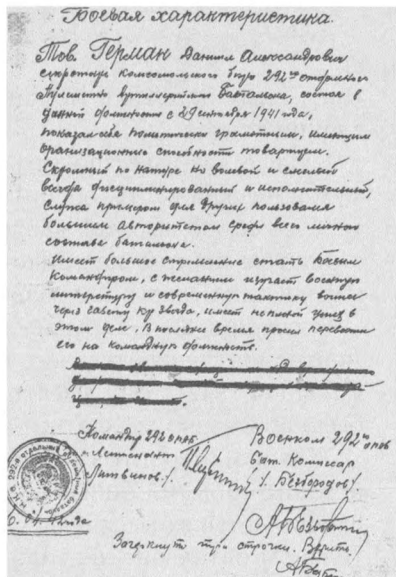 Боевая характеристика.
Тов. Герман Даниил Александрович
секретарь комсомольского бюро 292го отдельного
Пулеметно артиллерийского Батальона, состоя в
данной должности с 29 октября 1941 года,
показал себя политически грамотным, имеющим
организационные способности товарищем.
Скромный по натуре но волевой и смелый
всегда дисциплинированный и исполнительный,
служа примером для других пользовался
большим авторитетом среди всего личного
состава батальона.
Имеет большое стремление стать Боевым
Командиром, с желанием изучает военную
литературу и современную тактику войны
через газету Кр звезда, имеет не плохой успех в
этом деле. В последнее время просил перевести
его на командную должность.
Командир 292 опаб Военком 292го опаб
Лейтенант Бат. Комиссар
/Литвинов/. /. Безбородов/
Зачеркнуто три строчки. Верить.